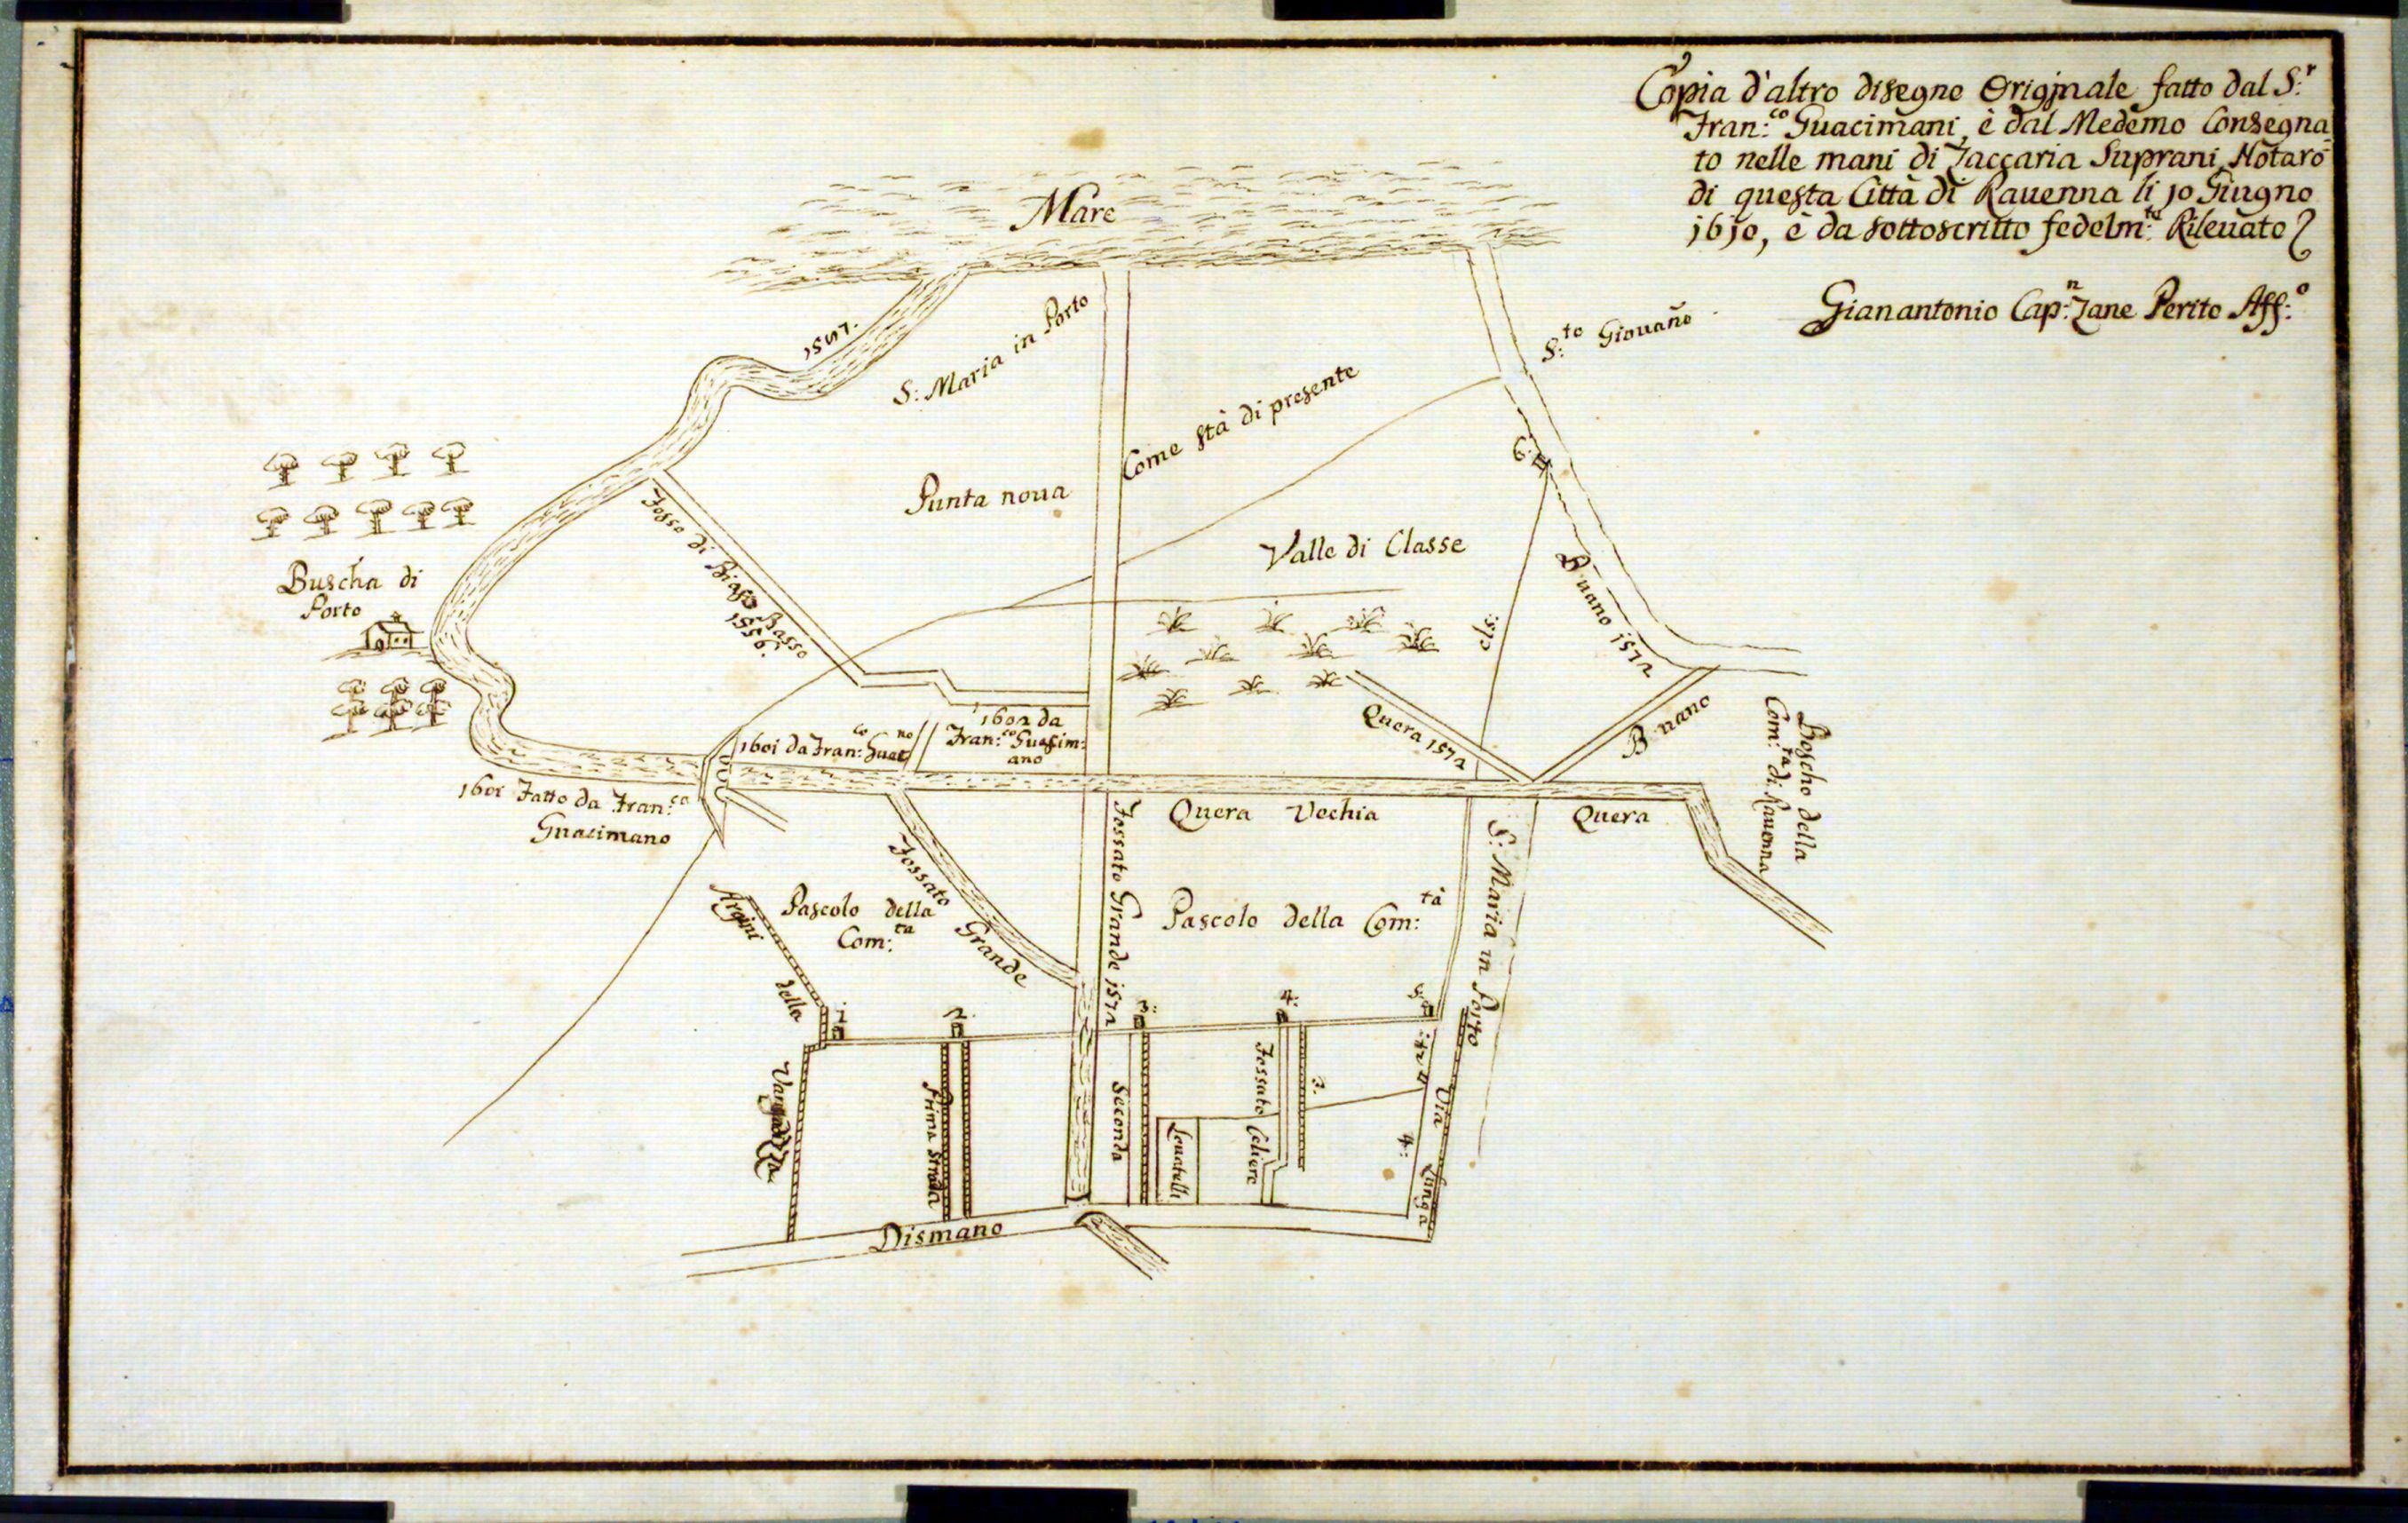 Copia d'altro disegno Originale fatto dal S:r
Fran:co Guacimani, è dal Medemo Consegna
to nelle mani di Zaccaria Suprani Notaro
di questa Città di Rauenna li 10 Giugno
1610, è da sottoscritto fedelm:te Rileuato
Gianantonio Cap:n Zane Perito Aff:o
Mare
1557.
S: Maria in Porto
S:to Giouano
Come stà di presente
6:
Punta noua
Fosso di Biaso Basso
1556.
Valle di Classe
Buscha di
Porto
Buano 1572
Quera 1572
Buano
Boscho della
Com:ta di Rauenna
1601 da Fran:co Guac no
1602 da
Fran:co Guasim:
ano
1601 Fatto da Fran:co
Guacimano
Quera Vechia
Quera
Fossato Grande
Fossato Grande 1572
S: Maria in Porto
Argini
della
Pascolo della
Com:ta
Pascolo della Com:tà
1
2
3:
4:
5:
Prima Strada
Seconda
Fossato
3:
4:
Via
Lunga
Dismano